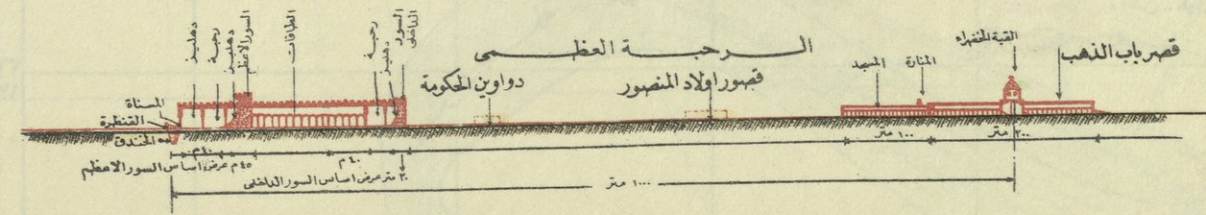 الرحبة العظمى
قصر باب الذهب
القبة الخضراء
المنارة
المسجد
قصور اولاد المنصور
دواوين الحكومة
السور الداخلي
دهليز
رحبة
الطاقات
السور الاعظم
دهليز
رحبة
دهليز
المسناة
القنطرة
الخندق
٢٠٠ متر
١٠٠ متر
٤٠ م
٤٠ م
٤٥ م عرض اساس السور الاعظم
٢٠ متر عرض اساس السور الداخلي
١٠٠٠ متر